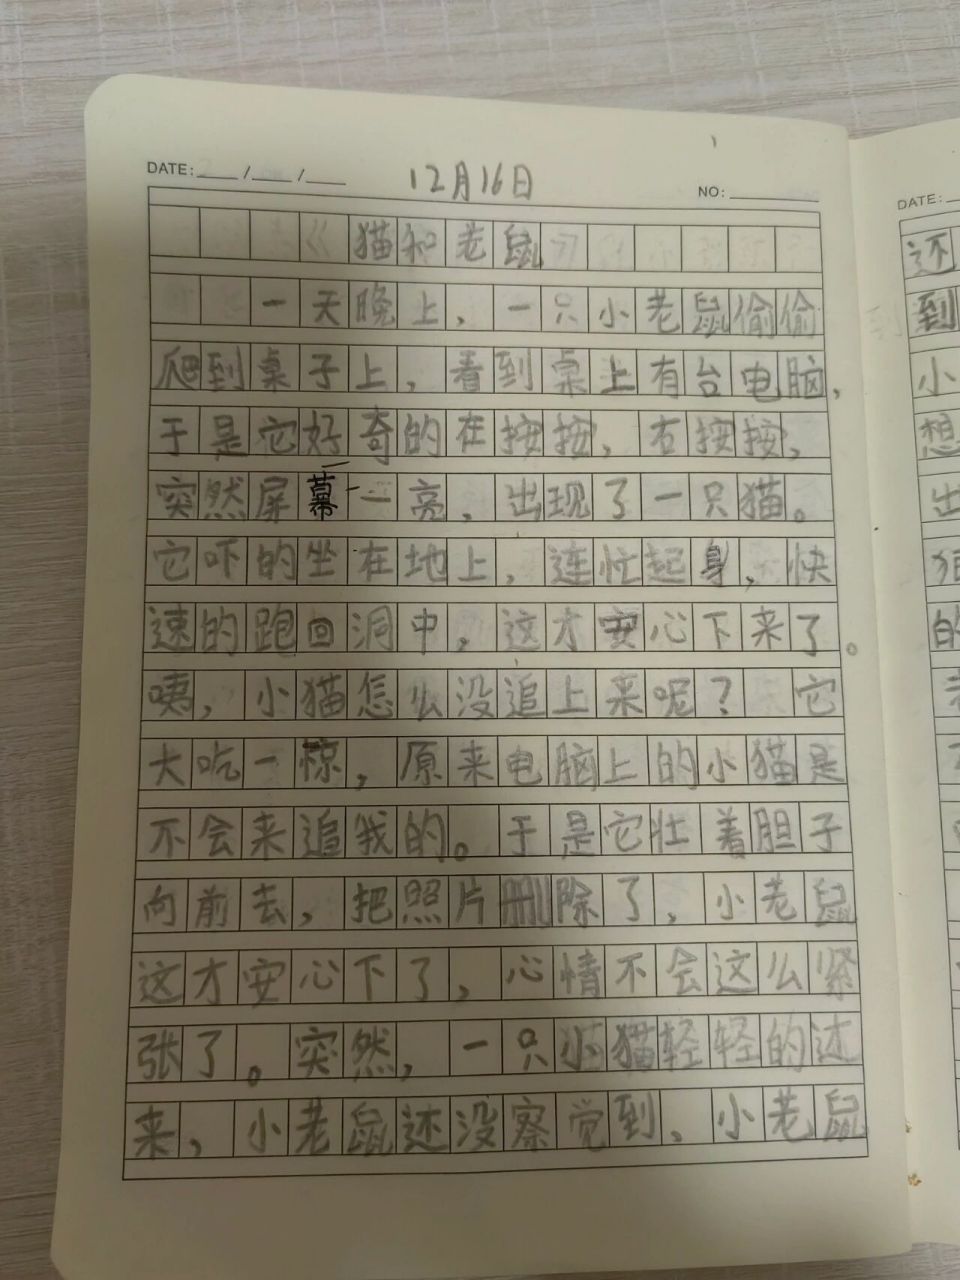 DATE: ___ / ___ / ___ 12月16日 NO: ___
《猫和老鼠》
一天晚上，一只小老鼠偷偷
爬到桌子上，看到桌上有台电脑，
于是它好奇的在按按，右按按，
突然屏幕一亮，出现了一只猫。
它吓的坐在地上，连忙起身，快
速的跑回洞中，这才安心下来了。
咦，小猫怎么没追上来呢？它
大吃一惊，原来电脑上的小猫是
不会来追我的。于是它壮着胆子
向前去，把照片删除了，小老鼠
这才安心下了，心情不会这么紧
张了。突然，一只小猫轻轻的过
来，小老鼠还没察觉到、小老鼠
DATE:
还
到
小
想
出
猫
的